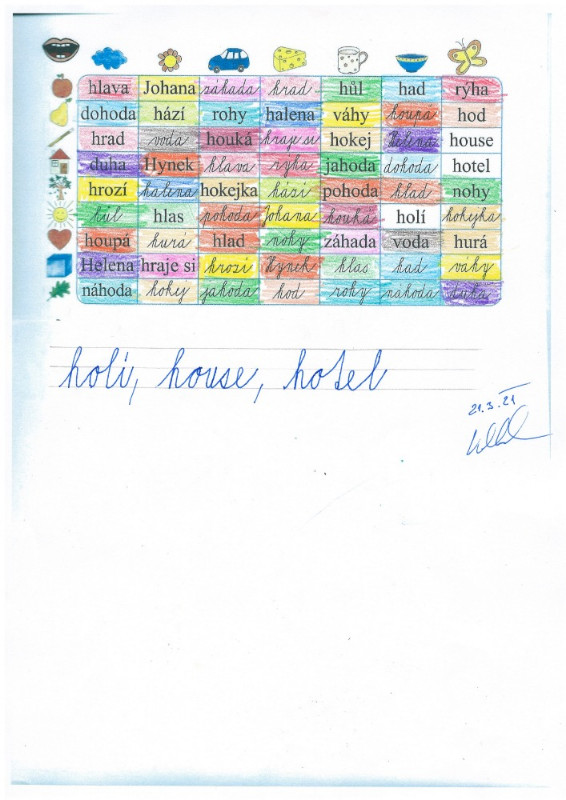 hlava Johana záhada hrad hůl had rýha
dohoda hází rohy halena váhy houpá hod
hrad voda houká hraje si hokej Helena house
duha Hynek hlava rýha jahoda dohoda hotel
hrozí halena hokejka hází pohoda hlad nohy
hůl hlas pohoda Johana houká holí hokejka
houpá hurá hlad nohy záhada voda hurá
Helena hraje si hrozí Hynek hlas had váhy
náhoda hokej jahoda hod rohy náhoda duha
holí, house, hotel
21.3.21